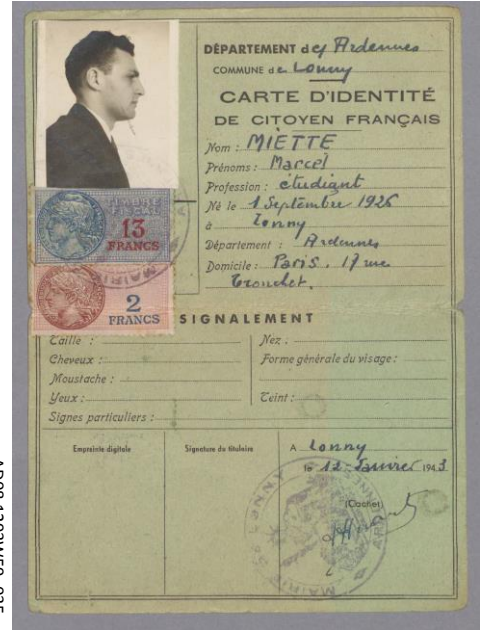 DÉPARTEMENT des Ardennes
COMMUNE de Lonny
CARTE D'IDENTITÉ
DE CITOYEN FRANÇAIS
Nom : MIETTE
Prénoms : Marcel
Profession : étudiant
Né le 1 Septembre 1926
à Lonny
Département : Ardennes
Domicile : Paris. 17 rue
Tronchet.
TIMBRE
FISCAL
13
FRANCS
2
FRANCS
SIGNALEMENT
Taille :
Cheveux :
Moustache :
Yeux :
Signes particuliers :
Nez :
Forme générale du visage :
Teint :
Empreinte digitale
Signature du titulaire
A Lonny
le 12 Janvier 1943
(Cachet)
MAIRIE
ARDENNES